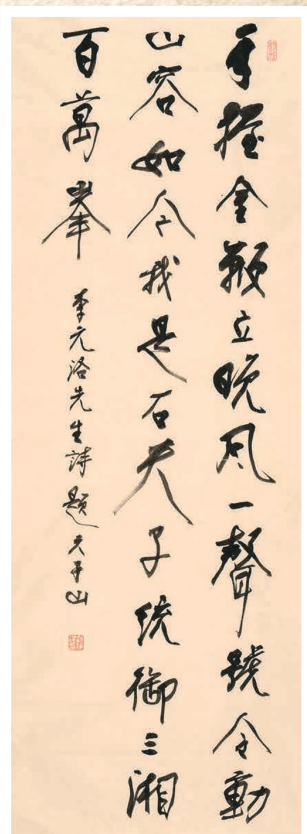 手握金鞭立晚风一聲號令動
山容如今我是石天子統御三湘
百萬峯
李元洛先生詩題天子山